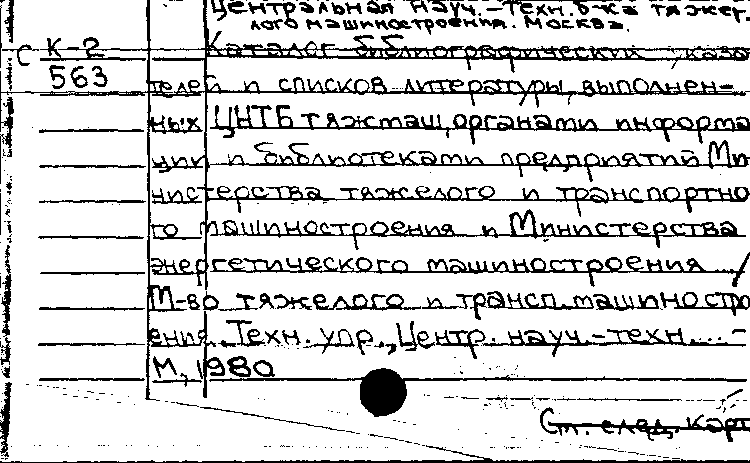 Центральная науч.-техн. б-ка тяжер.
лого машиностроения. Москва.
С К-2
563
Каталог библиографических указа
телей и списков литературы, выполнен-
ных ЦНТБтяжмаш, органами информа
ции и библиотеками предприятий Ми
нистерства тяжелого и транспортно
го машиностроения и Министерства
энергетического машиностроения /
М-во тяжелого и трансп. машиностро
ения. Техн. упр., Центр. науч.-техн... -
М, 1980
См. след. карт